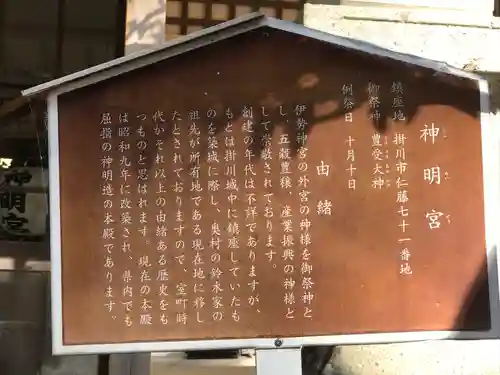 神明宮
鎮座地 掛川市仁藤七十一番地
御祭神 豊受大神
例祭日 十月十日
由緒
伊勢神宮の外宮の神様を御祭神と
し、五穀豊穣、産業振興の神様と
して崇敬されております。
創建の年代は不詳でありますが、
もとは掛川城中に鎮座していたも
のを築城に際し、奥村の鈴木家の
祖先が所有地である現在地に移し
たとされておりますので、室町時
代かそれ以上の由緒ある歴史をも
つものと思われます。現在の本殿
は昭和九年に改築され、県内でも
屈指の神明造の本殿であります。
神明宮